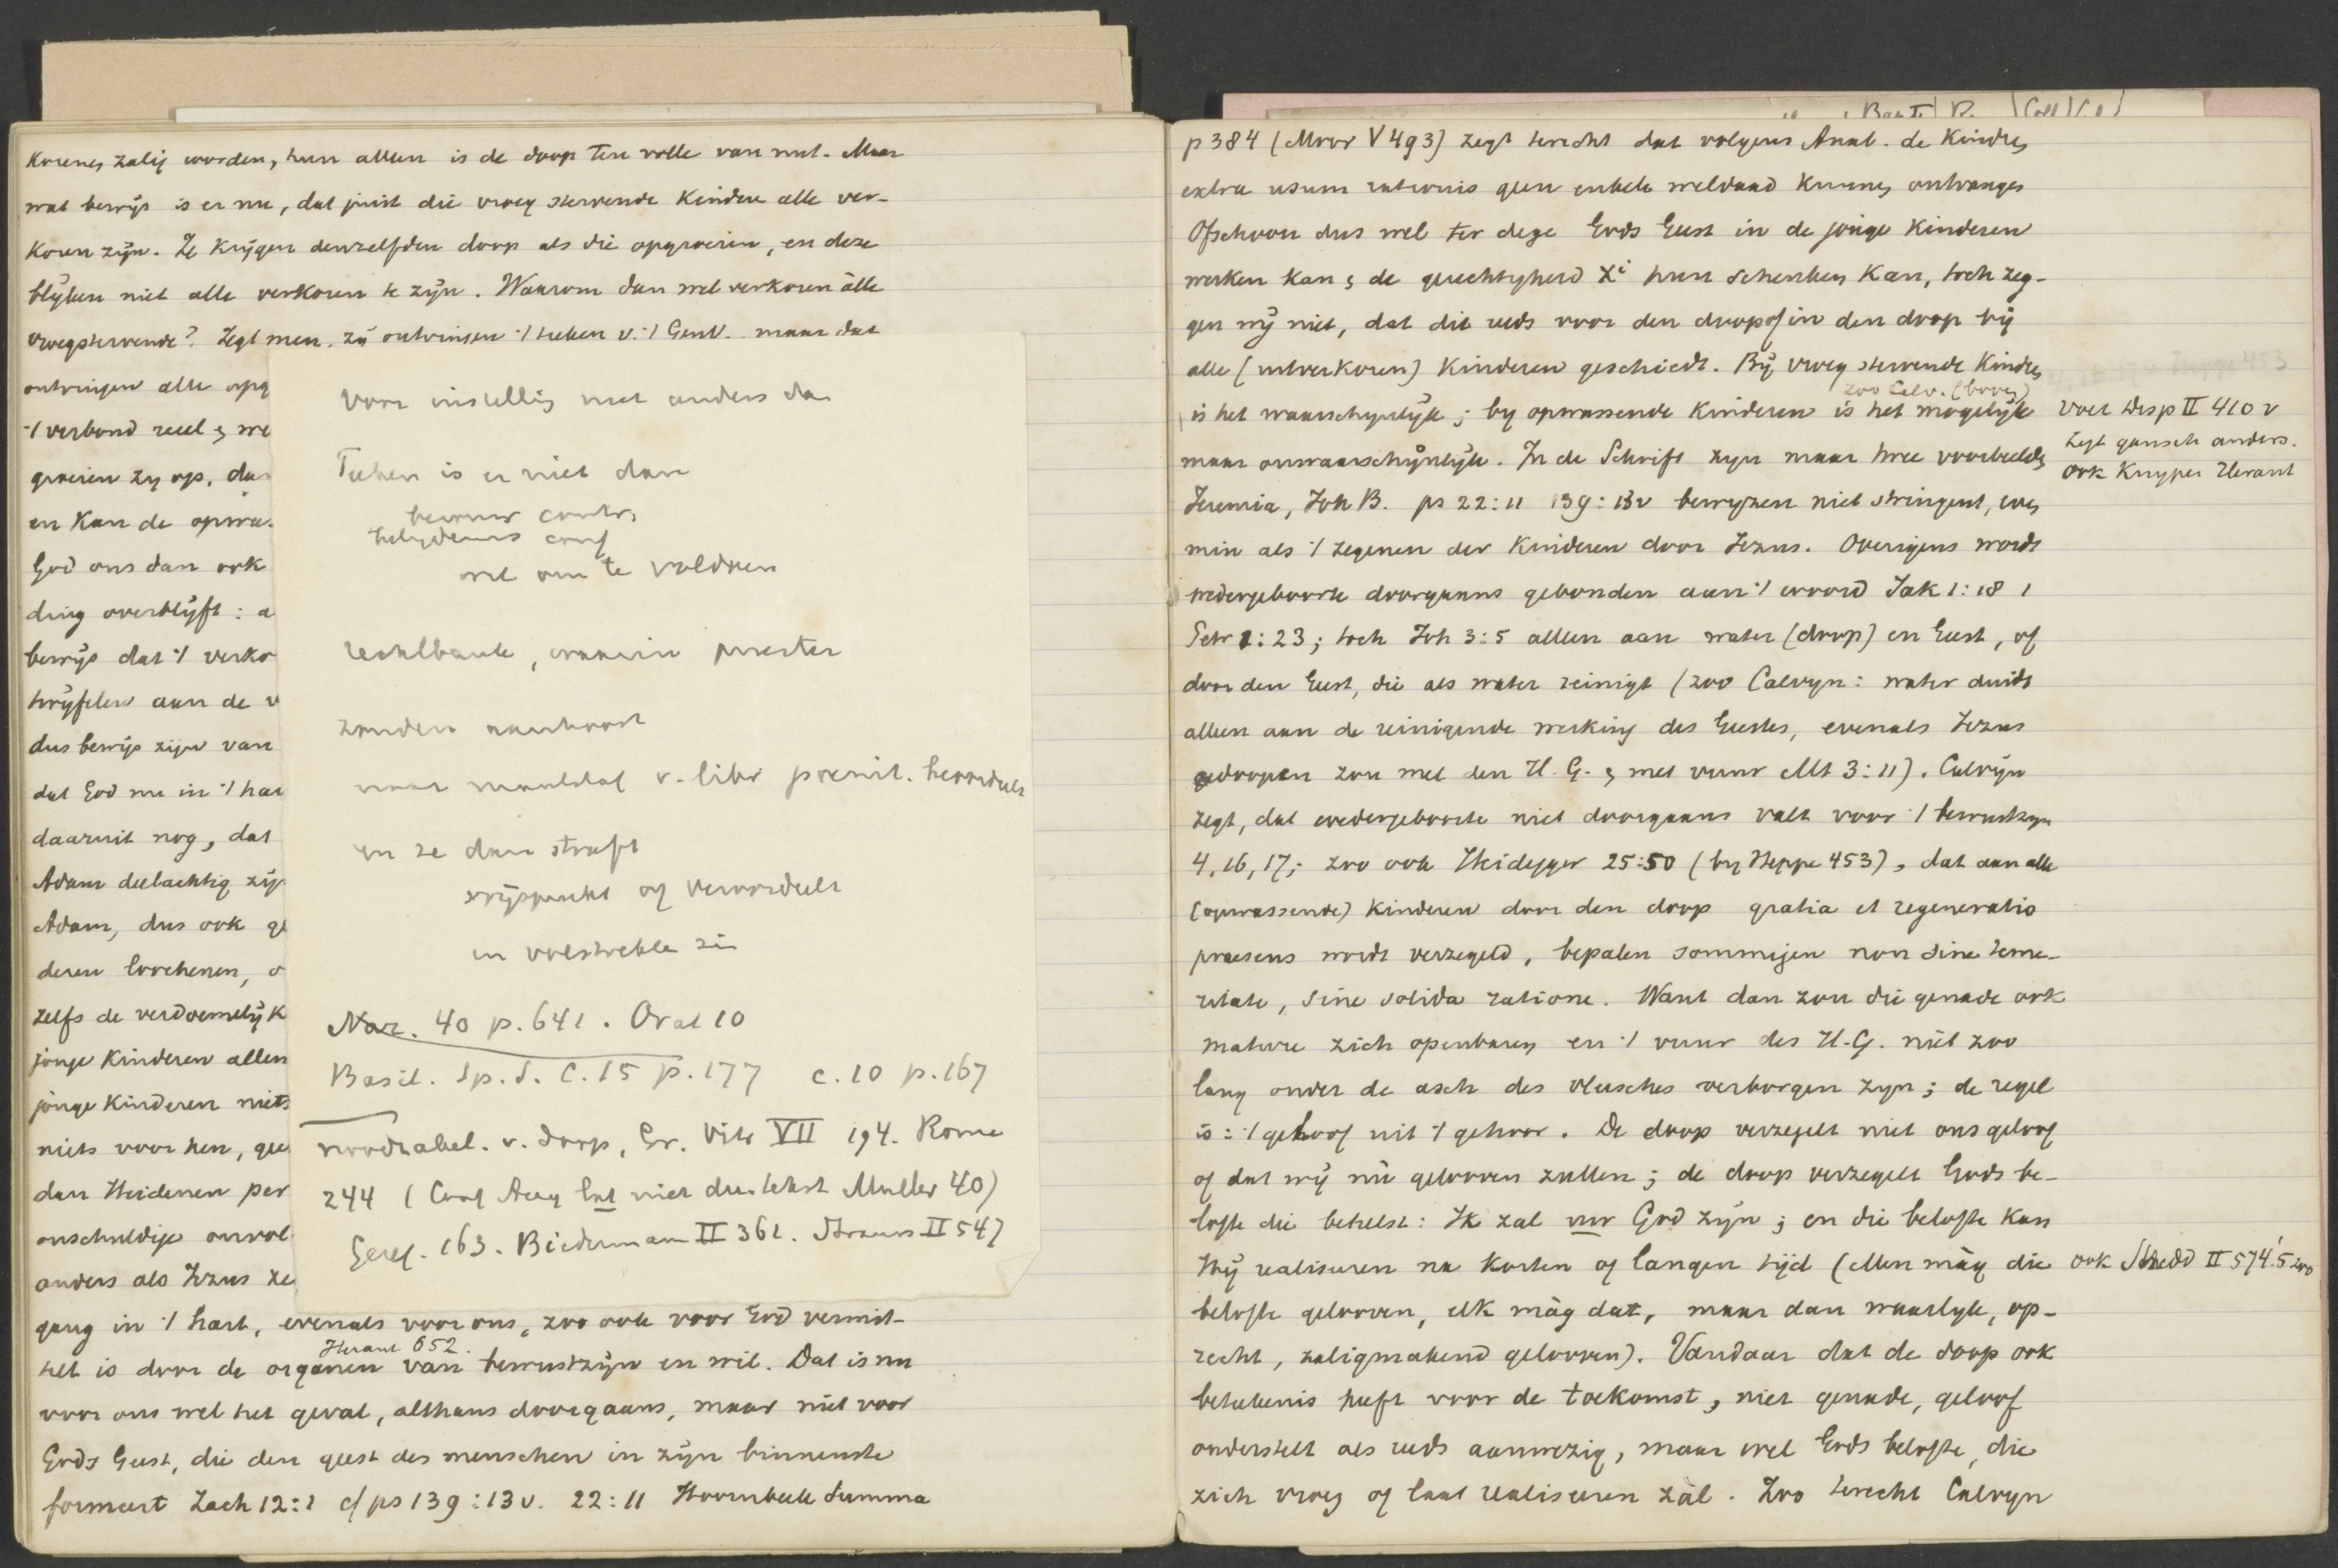 korenen zalig worden, hun alleen is de doop ten volle van nut. Maar
wat bewijs is er nu, dat juist die vroeg stervende kinderen alle ver-
koren zijn. Ze krijgen denzelfden doop als die opgroeien, en deze
blijken niet alle verkoren te zijn. Waarom dan wel verkoren àlle
vroegstervende? Zegt men, zij ontvingen 't teeken v. 't Genv. maar dat
ontvingen alle opg
't verbond reeel &
groeien zij op, da
en kan de opwa
God ons dan ook
ding overblijft: a
bewijs dat 't verko
twijfelen aan de v
dus bewijs zijn van
dat God nu in 't har
daaruit nog, dat
Adam deelachtig zij
Adam, dus ook g
deren loochenen, o
zelfs de verdoemelijk
jonge kinderen alleen
jonge kinderen niets
niets voor hen, gee
dan Heidenen per
onschuldige onvol
anders als Jezus ze
gang in 't hart, evenals voor ons, zoo ook voor God vermit-
Heraut 652.
telt is door de organen van bewustzijn en wil. Dat is nu
voor ons wel het geval, althans doorgaans, maar niet voor
Gods Geest, die den geest des menschen in zijn binnenste
formeert Zach 12:1 cf ps 139:13v. 22:11 Hoornbeek Summa
voor instelling niet anders dan
Teeken is er niet dan
berouw contr.
belijdenis conf
wil om te voldoen
rechtbank, waarin priester
zonden aanhoort
naar maatstaf v. libri poenit. beoordeelt
en ze dan straft
vrijspreekt of veroordeelt
in volstrekte zin
Naz. 40 p. 641. Orat 10
Basil. Sp. S. C. 15 p. 177 c. 10 p. 167
noodzakel. v. doop, Gr. Vitr VII 194. Rome
244 (Conf Aug lat niet duitsche Muller 40)
Geref. 163. Biedermann II 361. Strauss II 547
p 384 (Moor V 493) zegt terecht dat volgens Anab. de kinderen
extra usum rationis geen enkele weldaad kunnen ontvangen
Ofschoon dus wel ter dege Gods Geest in de jonge kinderen
werken kan & de gerechtigheid Xi hun schenken kan, toch zeg-
gen wij niet, dat dit reeds voor den doop of in den doop bij
alle (uitverkoren) kinderen geschiedt. Bij vroeg stervende kinderen
zoo Calv. (boven)
is het waarschijnlijk; bij opwassende kinderen is het mogelijk
maar onwaarschijnlijk. In de Schrift zijn maar twee voorbeelden
Jeremia, Joh B. ps 22:11 139:13v bewijzen niet stringent, even
min als 't zegenen der kinderen door Jezus. Overigens wordt
wedergeboorte doorgaans gebonden aan 't woord Jak 1:18 1
Petr 1:23; toch Joh 3:5 alleen aan water (doop) en Geest, of
door den Geest, die als water reinigt (zoo Calvijn: water duidt
alleen aan de reinigende werking des Geestes, evenals Jezus
gedoopen zou met den H. G. & met vuur Mt 3:11). Calvijn
zegt, dat wedergeboorte niet doorgaans valt voor 't bewustzijn
4, 16, 17; zoo ook Heidegger 25:50 (bij Heppe 453), dat aan alle
(opwassende) kinderen door den doop gratia et regeneratio
praesens wordt verzegeld, bepalen sommigen non sine teme-
ritate, sine solida ratione. Want dan zou die genade ook
mature zich openbaren en 't vuur des H. G. niet zoo
lang onder de asch des vleesches verborgen zijn; de regel
is: 't geloof uit 't gehoor. De doop verzegelt niet ons geloof
of dat wij nù gelooven zullen; de doop verzegelt Gods be-
lofte die behelst: Ik zal uw God zijn; en die belofte kan
Hij realiseeren na korten of langen tijd (Men màg die
belofte gelooven, elk màg dat, maar dan waarlijk, op-
recht, zaligmakend gelooven). Vandaar dat de doop ook
beteekenis heeft voor de toekomst, niet genade, geloof
onderstelt als reeds aanwezig, maar wel Gods belofte, die
zich vroeg of laat realiseeren zàl. Zoo terecht Calvijn
Voet Disp II 410 v
zegt gansch anders.
ook Kuyper Heraut
ook Shedd II 574.5 zoo